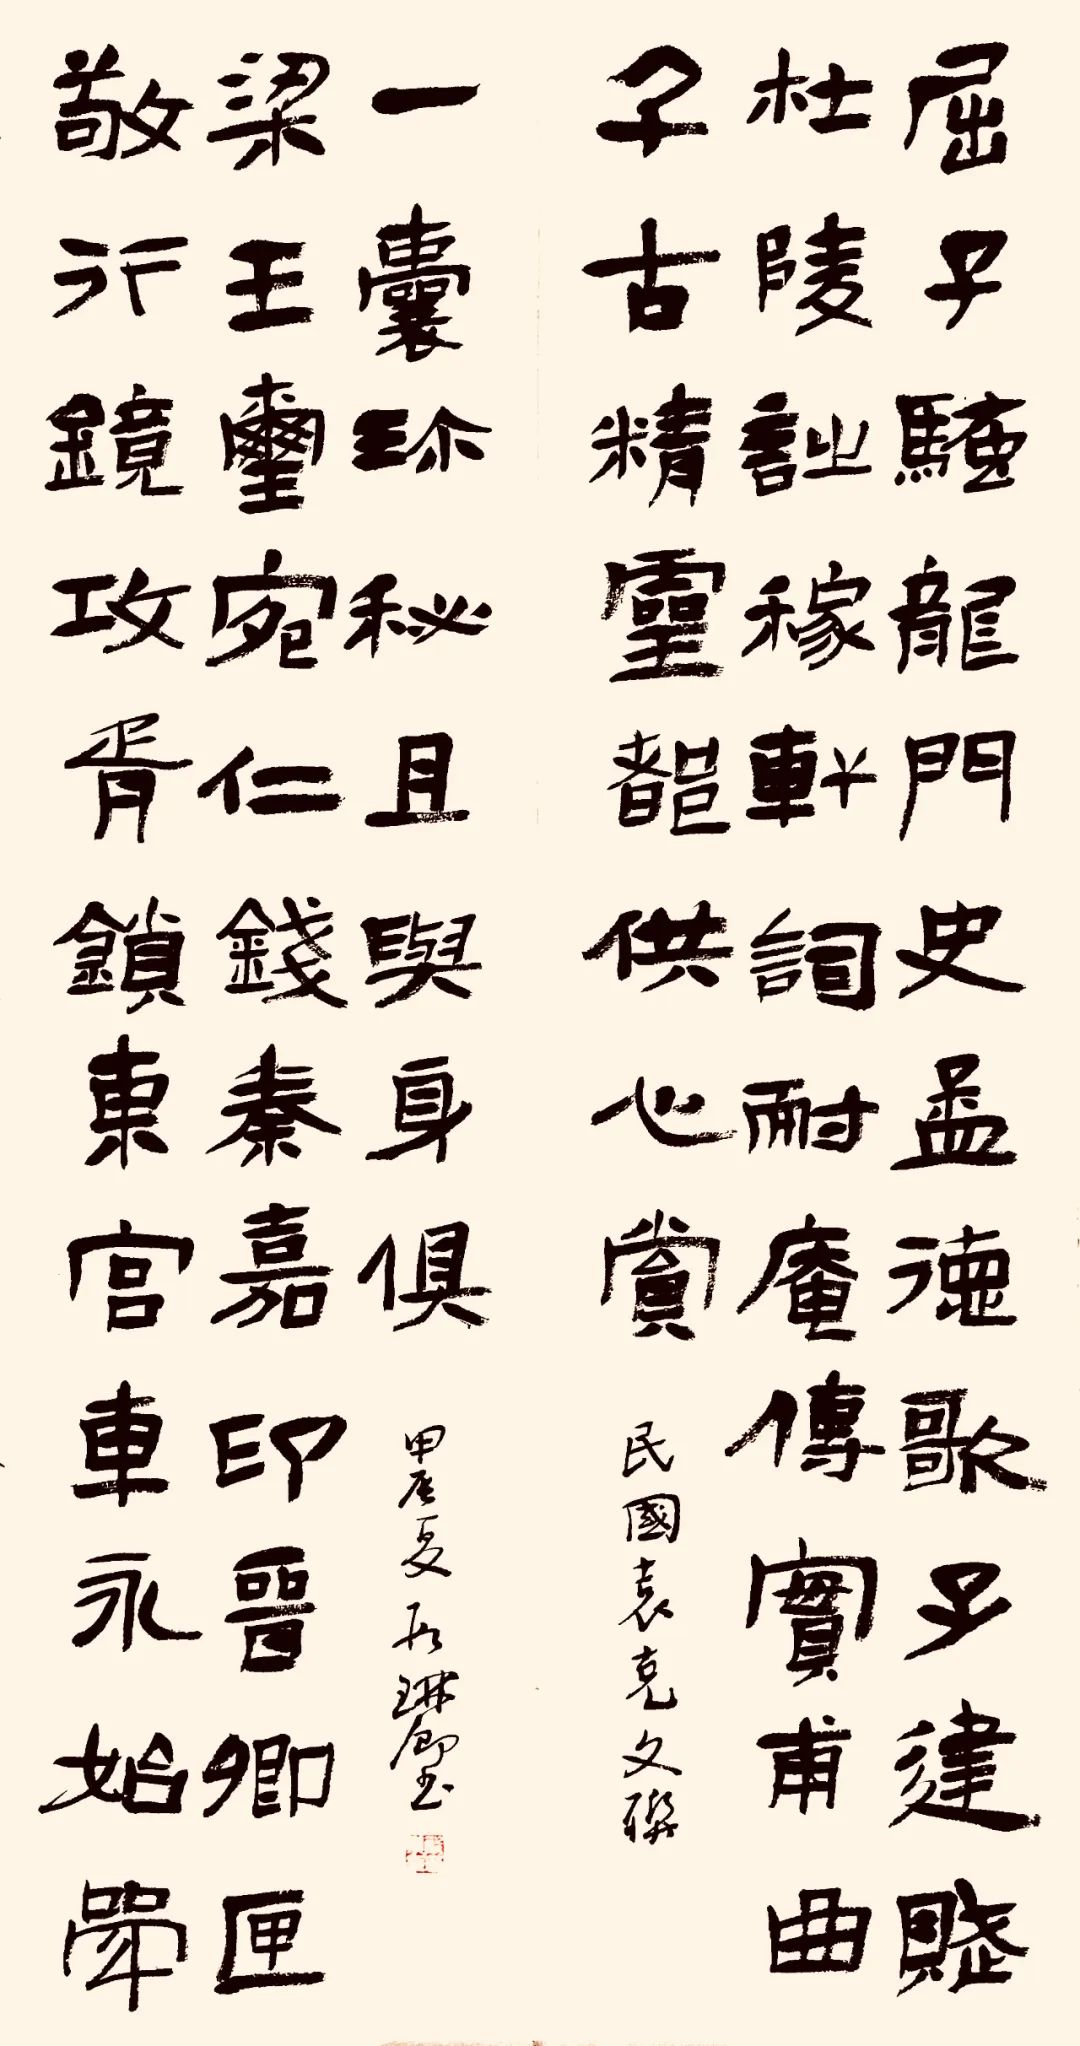 屈子騷龍門史孟德歌子建賦
杜陵詩稼軒詞耐庵傳實甫曲
子古精靈都供心賞
民國袁克文聯
敬行鏡攻胥鎖東宮車永始斝
梁王璽宛仁錢秦嘉印晉卿匣
一囊珍秘且與身俱
甲辰夏 琳卿書